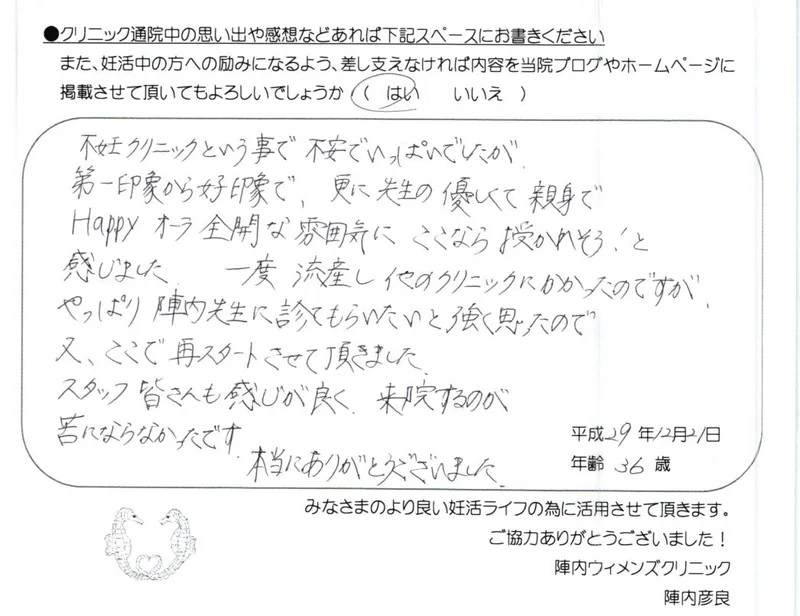 ●クリニック通院中の思い出や感想などあれば下記スペースにお書きください
また、妊活中の方への励みになるよう、差し支えなければ内容を当院ブログやホームページに
掲載させて頂いてもよろしいでしょうか ( はい いいえ )
不妊クリニックという事で 不安でいっぱいでしたが
第一印象から好印象で、更に先生の優しくて親身で
Happy オーラ全開な雰囲気に ここなら授かれそう!と
感じました 一度 流産し他のクリニックにかかったのですが、
やっぱり陣内先生に診てもらいたいと強く思ったので
又、ここで再スタートさせて頂きました
スタッフ皆さんも感じが良く 来院するのが
苦にならなかったです
本当にありがとうございました
平成29年12月21日
年齢 36 歳
みなさまのより良い妊活ライフの為に活用させて頂きます。
ご協力ありがとうございました!
陣内ウィメンズクリニック
陣内彦良